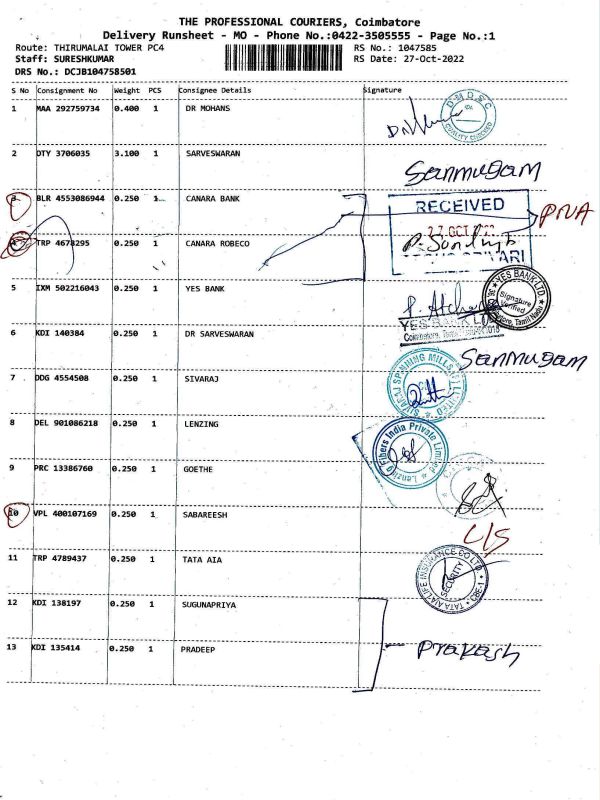 THE PROFESSIONAL COURIERS, Coimbatore
Delivery Runsheet - MO - Phone No.:0422-3505555 - Page No.:1
Route: THIRUMALAI TOWER PC4 RS No.: 1047585
Staff: SURESHKUMAR RS Date: 27-Oct-2022
DRS No.: DCJB104758501
S No Consignment No Weight PCS Consignee Details Signature
1 MAA 292759734 0.400 1 DR MOHANS
DMDSC
QUALITY CHECKED
2 DTY 3706035 3.100 1 SARVESWARAN Sanmugam
3 BLR 4553086944 0.250 1 CANARA BANK
RECEIVED
PNA
27 OCT
4 TRP 4678295 0.250 1 CANARA ROBECO
5 IXM 502216043 0.250 1 YES BANK
YES BANK LTD
Signature Verified
Coimbatore, Tamil Nadu
6 KDI 140384 0.250 1 DR SARVESWARAN Sanmugam
7 DDG 4554508 0.250 1 SIVARAJ
SIVARAJ SPINNING MILLS LIMITED
8 DEL 901086218 0.250 1 LENZING
Lenzing Fibers India Private Limited
9 PRC 13386760 0.250 1 GOETHE
10 VPL 400107169 0.250 1 SABAREESH L/S
11 TRP 4789437 0.250 1 TATA AIA
TATA AIA LIFE INSURANCE CO LTD
SECURITY
CBE-1
12 KDI 138197 0.250 1 SUGUNAPRIYA
13 KDI 135414 0.250 1 PRADEEP Prakash